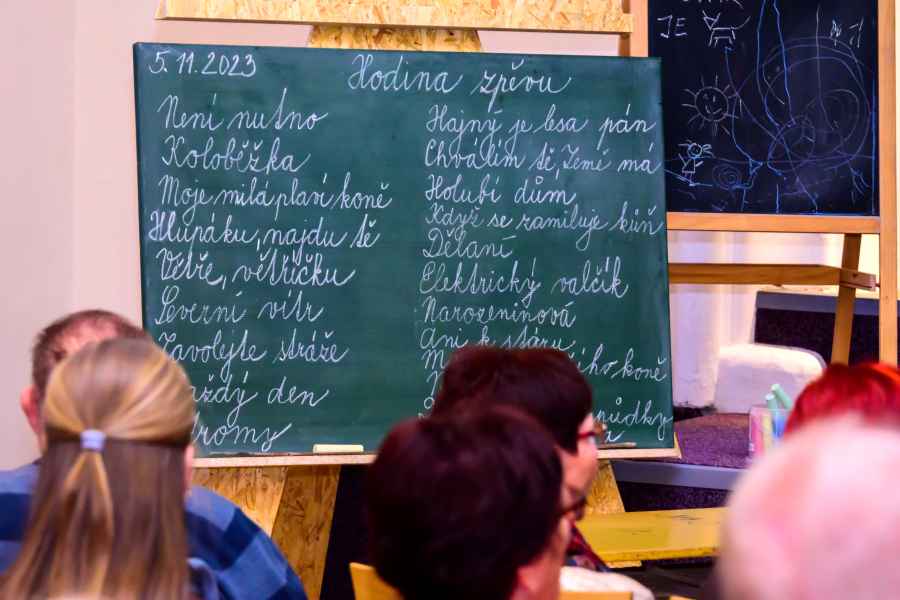 5.11.2023
Hodina zpěvu
Není nutno
Koloběžka
Moje milá plaví koně
Hlupáku, najdu tě
Větře, větříčku
Severní vítr
Zavolejte stráže
den
Hajný je lesa pán
Chválím tě, Země má
Holubí dům
Když se zamiluje kůň
Dělání
Elektrický valčík
Narozeninová
Ani k stáru
koně
JE